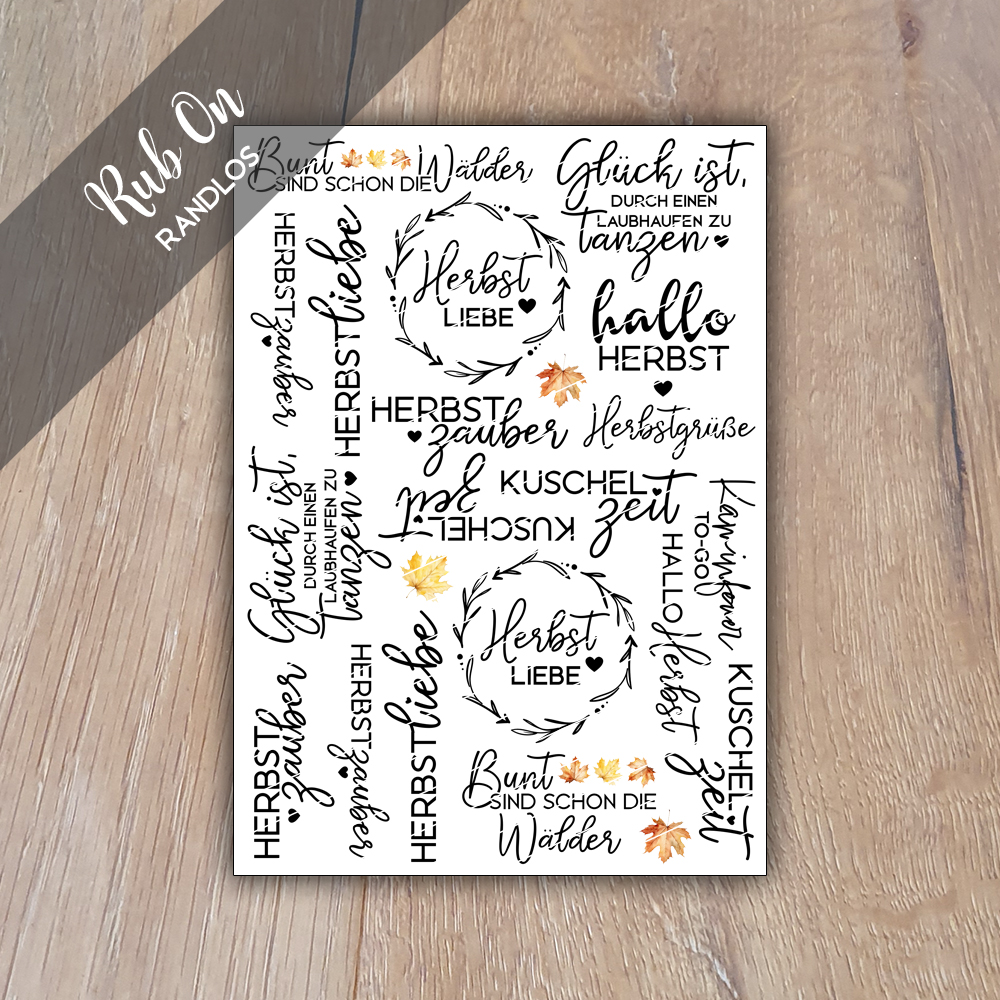 Rub On
RANDLOS
Bunt Wälder
SIND SCHON DIE
Glück ist,
DURCH EINEN
LAUBHAUFEN ZU
tanzen
HERBST
zauber
HERBSTliebe
Herbst
LIEBE
hallo
HERBST
HERBST
zauber
Herbstgrüße
KUSCHEL
zeit
KUSCHEL
zeit
Glück ist,
DURCH EINEN
LAUBHAUFEN ZU
tanzen
Kaminfeuer
TO-GO
HALLO Herbst
Herbst
LIEBE
HERBST
zauber
HERBST
zauber
HERBSTliebe
KUSCHEL
zeit
Bunt
SIND SCHON DIE
Wälder